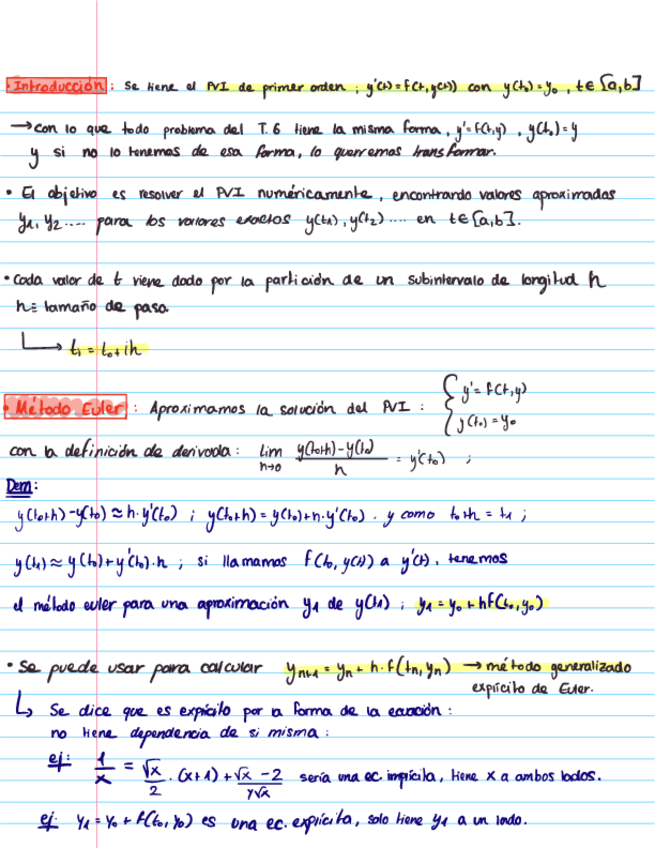 · Introducción : Se tiene el PVI de primer orden ; y'(t)=f(t,y(t)) con y(t₀)=y₀ , t∈[a,b]
→ con lo que todo problema del T.6 tiene la misma forma, y'=f(t,y) , y(t₀)=y
y si no lo tenemos de esa forma, lo querremos transformar.
• El objetivo es resolver el PVI numéricamente, encontrando valores aproximados
y₁, y₂ .... para los valores exactos y(t₁), y(t₂) .... en t∈[a,b].
• Cada valor de t viene dado por la partición de un subintervalo de longitud h
h≡ tamaño de paso.
↳ t₁ = t₀+ih
· Método Euler : Aproximamos la solución del PVI : { y'= f(t,y)
y(t₀)=y₀
con la definición de derivada: lim h→0 (y(t₀+h)-y(t₀))/h = y'(t₀) ;
Dem:
y(t₀+h)-y(t₀) ≈ h·y'(t₀) ; y(t₀+h) = y(t₀)+h·y'(t₀) . y como t₀+h = t₁ ;
y(t₁) ≈ y(t₀)+y'(t₀)·h ; si llamamos f(t₀, y(t)) a y'(t), tenemos
el método euler para una aproximación y₁ de y(t₁) ; y₁ = y₀ + hf(t₀, y₀)
• Se puede usar para calcular yₙ₊₁ = yₙ + h·f(tₙ, yₙ) → método generalizado
explícito de Euler.
↳ Se dice que es explícito por la forma de la ecuación :
no tiene dependencia de si misma :
ej: 1/x = √x/2 · (x+1) + (√x - 2)/(7√x) sería una ec. implícita, tiene x a ambos lados.
ej: y₁ = y₀ + f(t₀, y₀) es una ec. explícita, solo tiene y₁ a un lado.